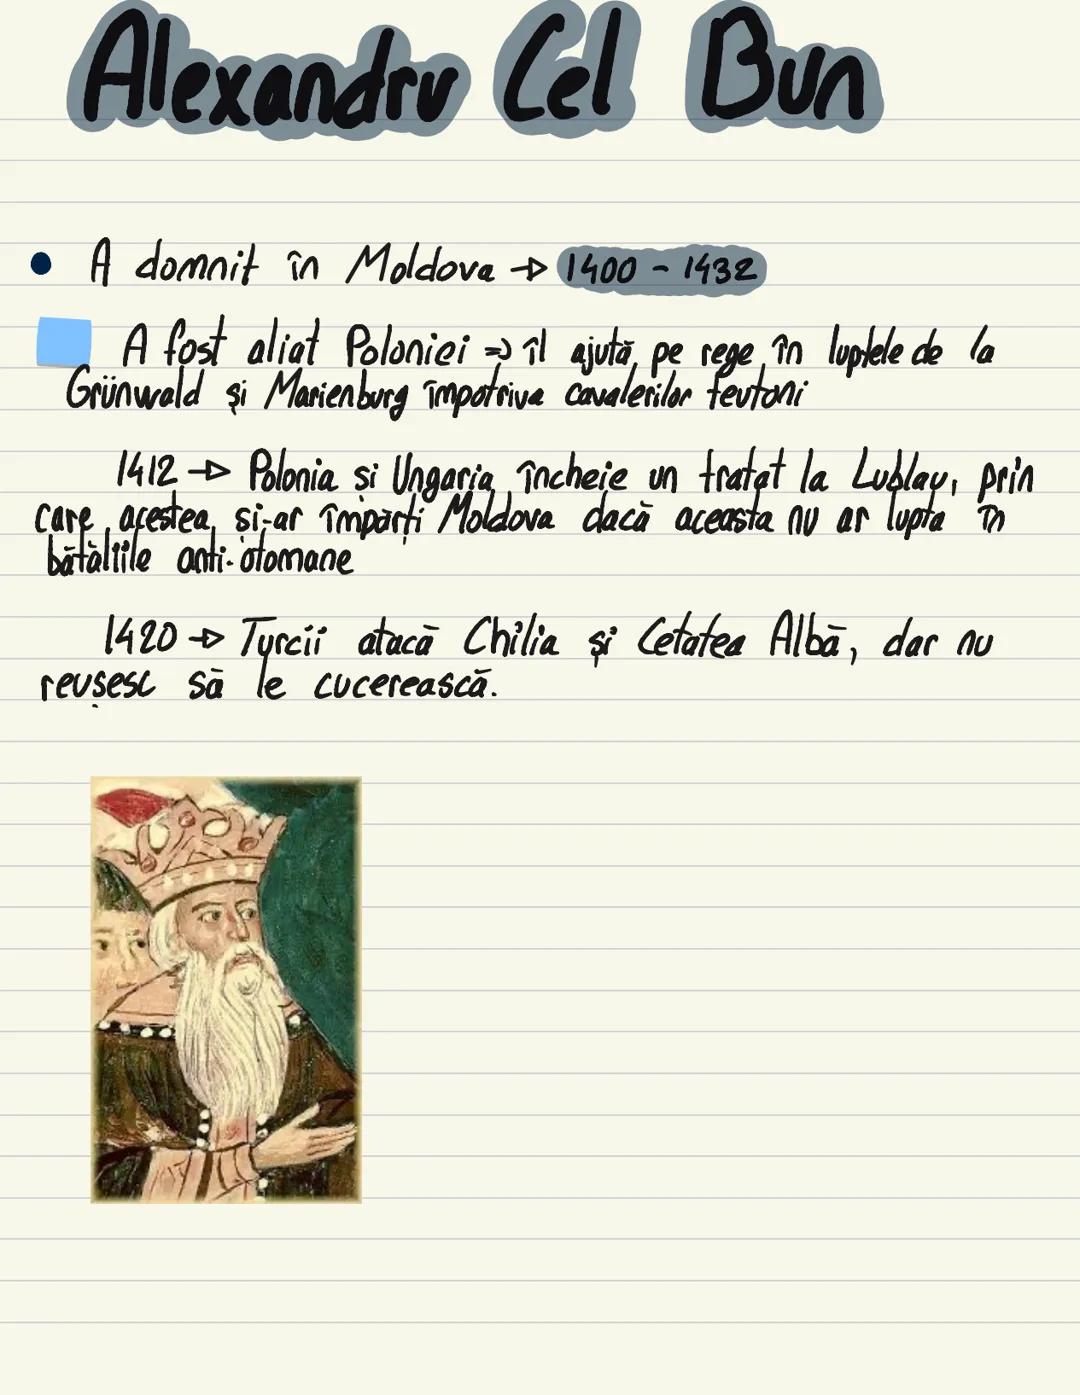 Alexandru Cel Bun
• A domnit în Moldova → 1400 - 1432
A fost aliat Poloniei => îl ajută pe rege în luptele de la
Grünwald și Marienburg împotriva cavalerilor teutoni
1412 → Polonia și Ungaria încheie un tratat la Lublau, prin
care acestea și-ar împărți Moldova dacă aceasta nu ar lupta în
bătăliile anti-otomane
1420 → Turcii atacă Chilia și Cetatea Albă, dar nu
reușesc să le cucerească.